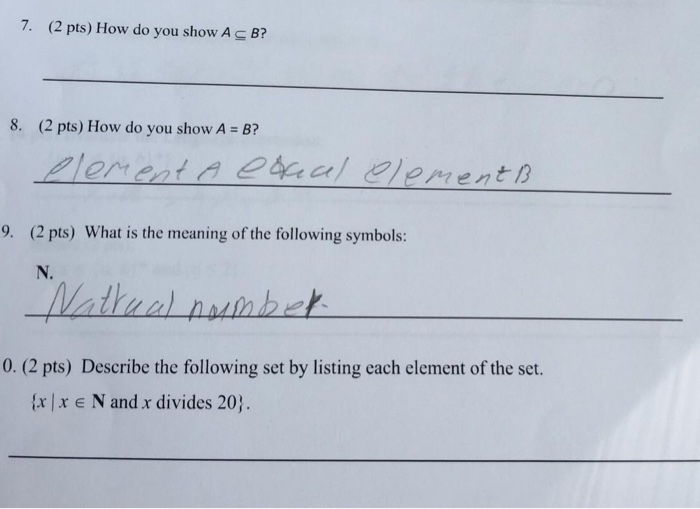 7. (2 pts) How do you show A ⊆ B?
8. (2 pts) How do you show A = B?
element A equal element B
9. (2 pts) What is the meaning of the following symbols:
N.
Natrual number.
0. (2 pts) Describe the following set by listing each element of the set.
{x | x ∈ N and x divides 20}.